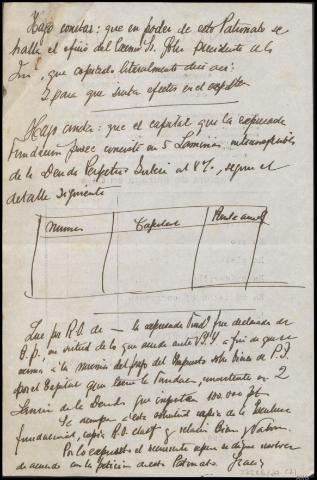 Hago constar: que en poder de este Patronato se
halla el oficio del Excmo Sr. Gober. presidente de la
que copiado literalmente dice así:
Y para que surta efectos en el expdte
Hago constar: que el capital que la expresada
Fundación posee consiste en 5 Láminas intransferibles
de la Deuda Perpetua Interior al 4%, según el
detalle siguiente
Numero Capital Renta anual
Que por R.O. de — la expresada Fund. fue declarada de
B.P. en virtud de lo que acude ante V.I. a fin de que se
a la del pago del Impuesto sobre Bienes de P.J.
por el Capital que tiene la Fundacn, consistente en 2
Lamin de la Deuda que importan 100.000 pts
Se acompaña a esta solicitud copia de la escritura
fundacional, copia R.O. clasif y relación Bienes y Valores.
Por lo expuesto el recurrente espera se digne resolver
de acuerdo con la petición de este Patronato. Gracia